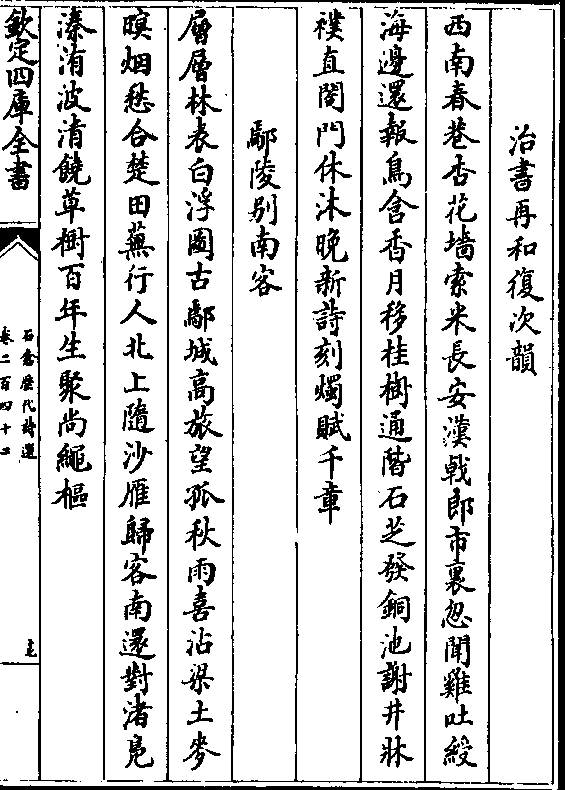 治書再和復次韻
西南春巷杏花墙索米長安漢戟郎市裏忽聞雞吐綬
海邊還報鳥含香月移桂樹通階石芝發銅池謝井牀
襆直閤門休沐晚新詩刻燭賦千章
鄢陵别南客
層層林表白浮圖古鄢城高旅望孤秋雨喜沾梁土麥
暝烟愁合楚田蕪行人北上隨沙雁歸客南還對渚鳬
溱洧波清饒草樹百年生聚尚繩樞
欽定四庫全書
石倉歷代詩選
卷二百四十二